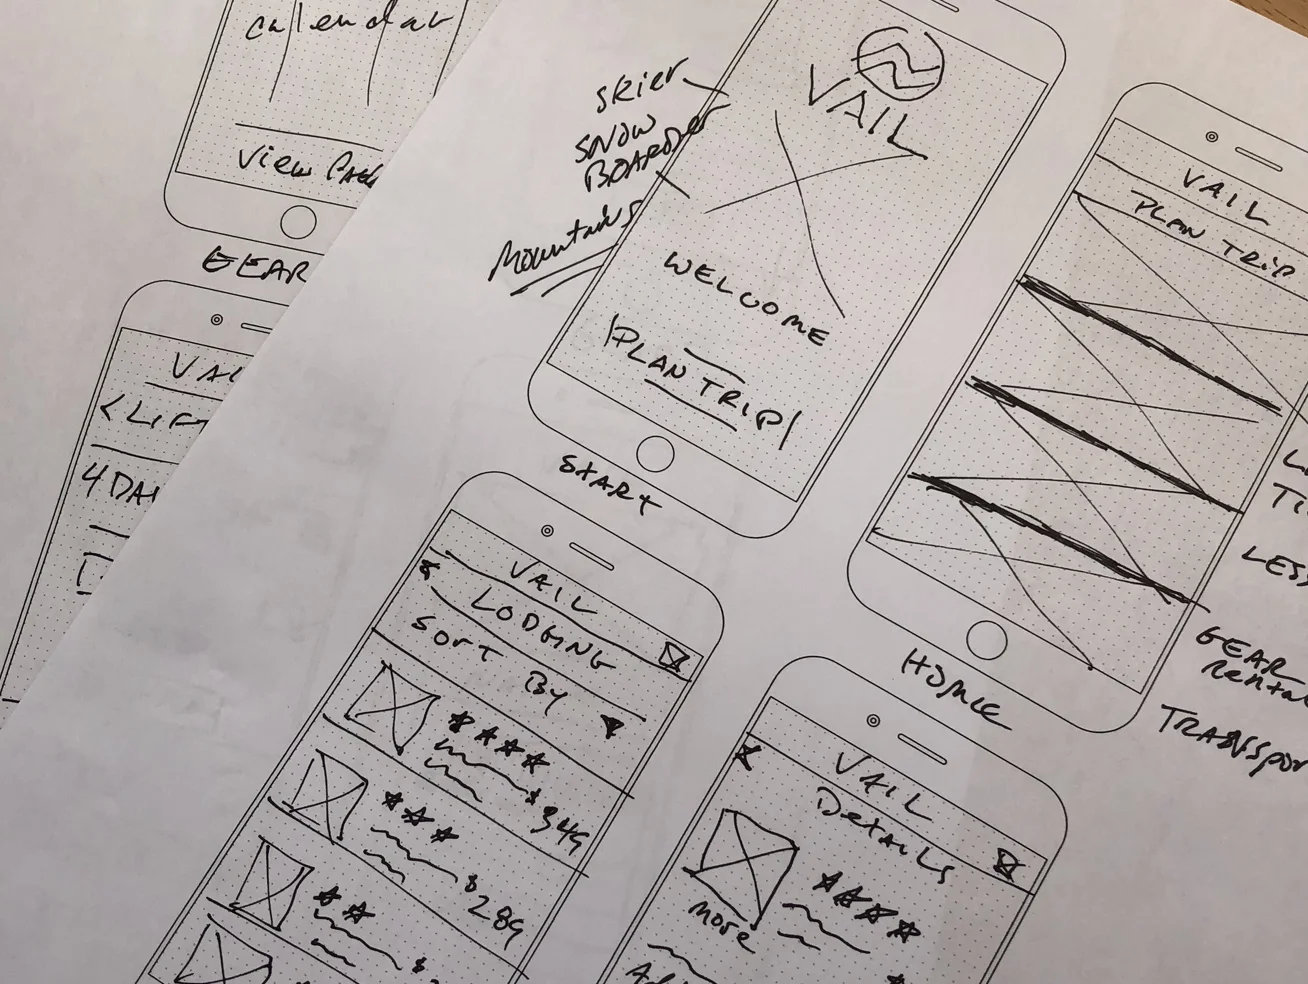 calendar
View
GEAR
VAIL
< LIFT
4 DAY
skier
SNOW
BOARDER
Mountains
VAIL
WELCOME
PLAN TRIP
START
VAIL
PLAN TRIP
HOME
LESS
GEAR
Renta
TRANSPOR
VAIL
LODGING
SORT BY
$349
$289
$
VAIL
Details
more